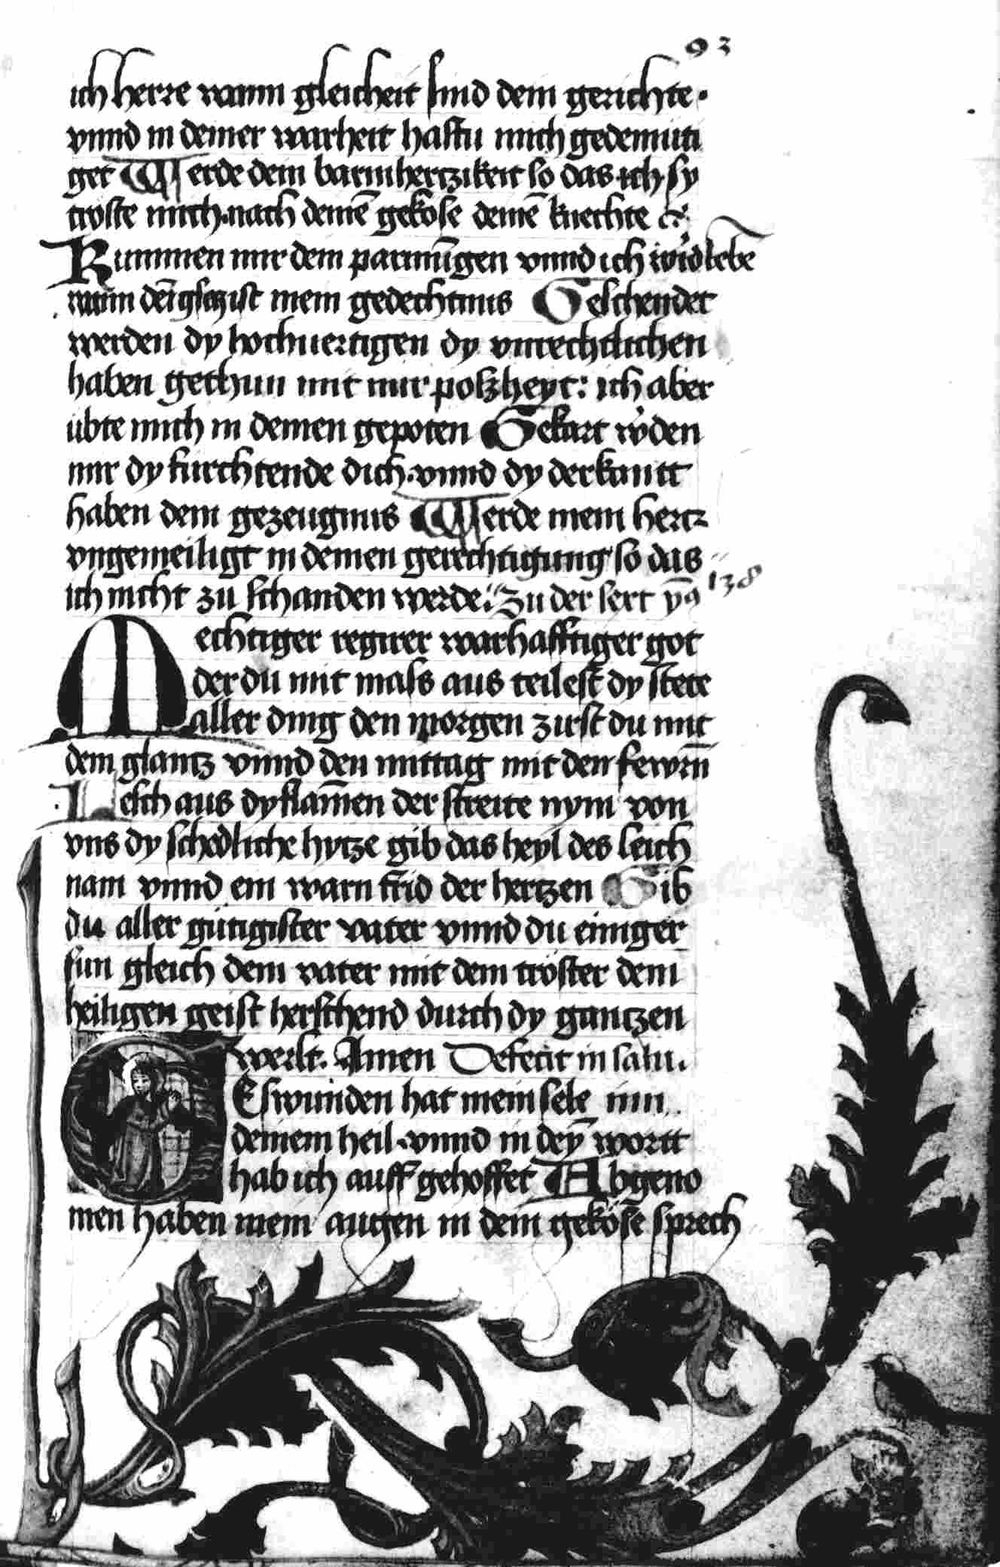 93
ich herre wann gleicheit sind dein gerichte.
vnnd in deiner warheit hastu mich gedemüti
get Werde dein barmhertzikeit so das ich sy
tröste mich nach deinē geköse deinē knechte
Kummen mir dein parmūgen vnnd ich wird lebē
wann dein gesecz ist mein gedechtnus Geschendet
werden dy hochuertigen dy vnrechtlichen
haben gethun mit mir poßheyt: ich aber
übte mich in deinen gepoten Gekart wͤden
mir dy fürchtende dich. vnnd dy derkantt
haben dein gezeugnus Werde mein hertz
vngemeiligt in deinen gerechtigung so das
ich nicht zu schanden werde. Zu der sext yp̄9 138
Mechtiger regirer warhafftiger got
der du mit mass aus teilest dy stete
aller ding den morgen zirst du mit
dem glantz vnnd den mittag mit den fewrn̄
Lesch aus dy flam̄en der streite nym von
vns dy schedliche hytze gib das heyl des leich
nam vnnd ein warn frid der hertzen Gib
du aller gütigister vater vnnd du einiger
sun gleich dem vater mit dem tröster dem
heiligen geist herschend durch dy gantzen
werlt. Amen Defecit in salu.
Geswunden hat mein sele inn
deinem heil. vnnd in dey̅ wortt
hab ich auff gehoffet Abgeno
men haben mein augen in dein geköse sprech